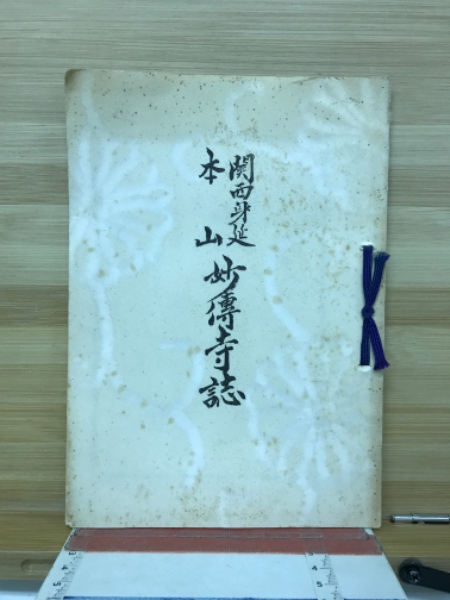 関西身延
本山
妙傳寺誌